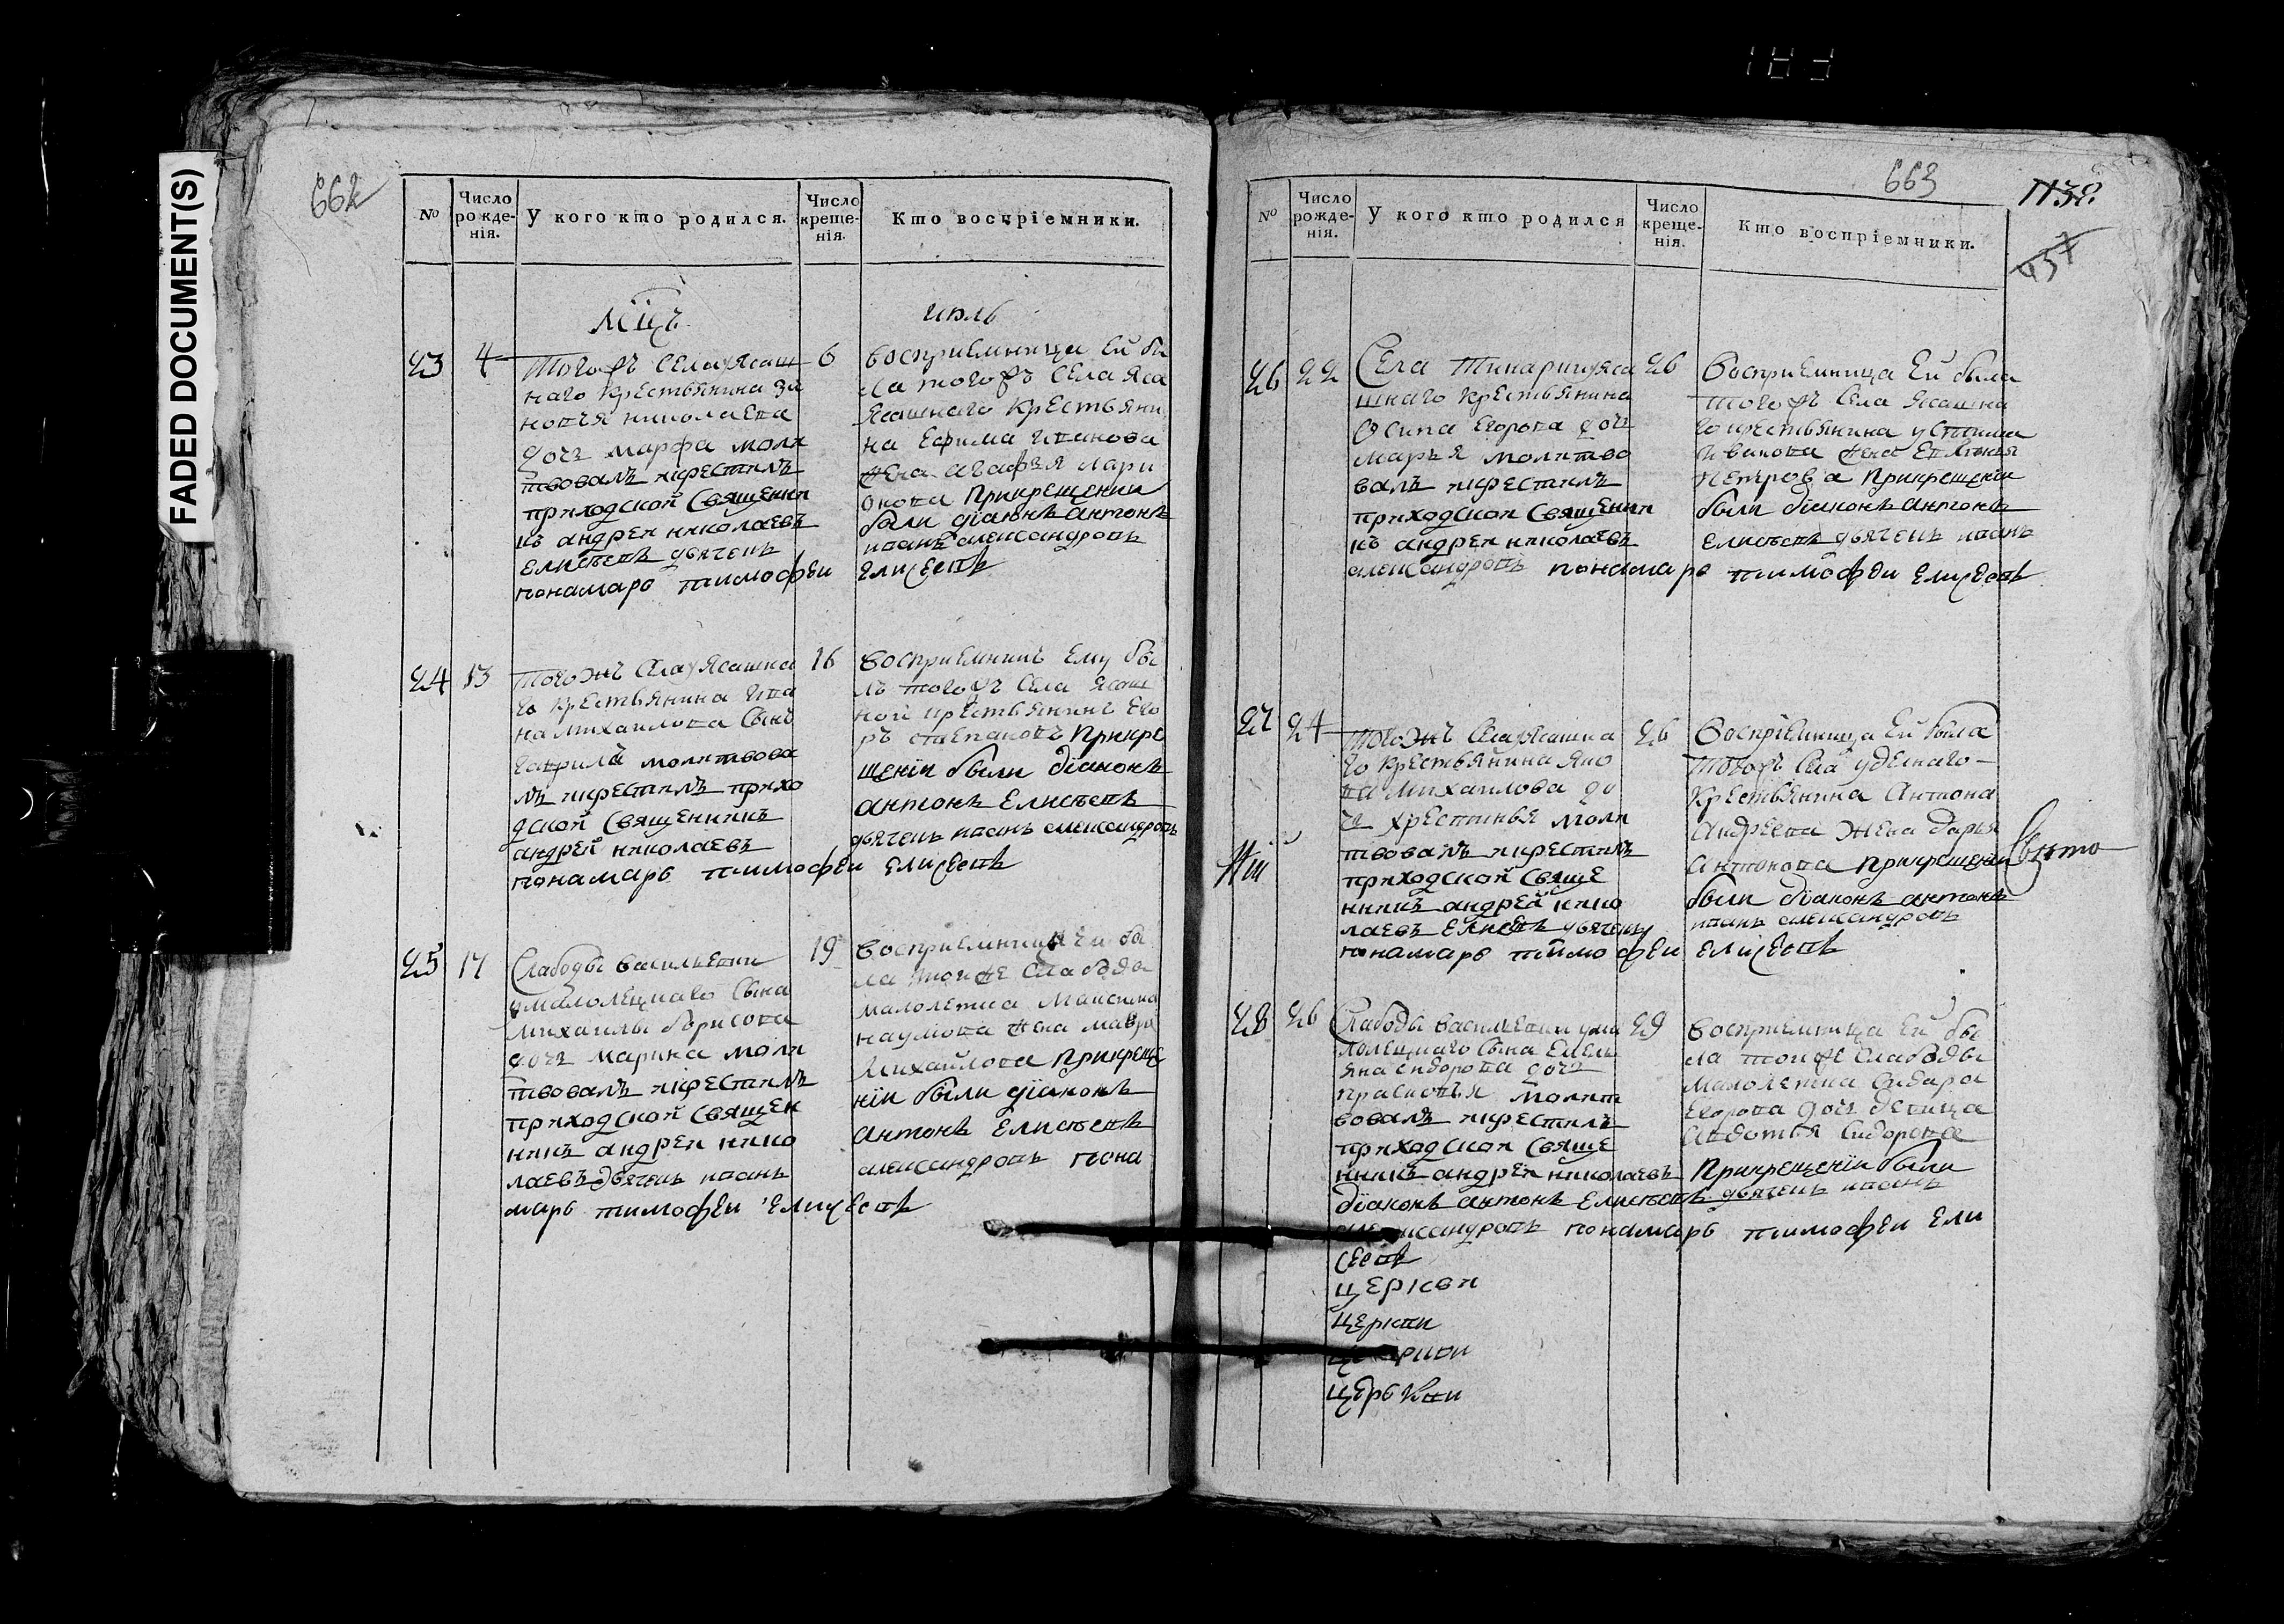 FADED DOCUMENT(S)
662
№ Число рожде- нія. У кого кто родился. Число креще- нія. Кто воспріемники.
Мїцъ
июль
23 4 6
тогожъ села ясаш
наго крестьянина зи
новья николаева
дочь марфа моли
твовалъ икрестилъ
приходской священни
къ андреи николаевъ
елисѣевъ дьячекъ
понамарь тимофеи
восприемница ей бы
ла тогожъ села яса
ясашнаго крестьяни
на ефима иванова
жена агафья лари
онова прикрещении
были дїаконъ антонъ
иванъ александровъ
елисеевъ
24 13 16
тогожъ села ясашна
го крестьянина ива
на михаилова сынъ
гаврила молитвова
лъ икрестилъ прихо
дской священникъ
андрей николаевъ
понамарь тимофеи
восприемникъ ему бы
лъ тогожъ села ясаш
ной крестьянинъ его
ръ степановъ прикре
щенїи были дїаконъ
антонъ елисѣевъ
дьячекъ иванъ александровъ
елисеевъ
25 17 19
слабоды василевки
умалолецнаго сына
михаилы борисова
дочь марина моли
твовалъ икрестилъ
приходской священ
никъ андреи нико
лаевъ дьячекъ иванъ
марь тимофеи
восприемница еи бы
ла тоиже слабоды
малолетка максима
наумова жена мавра
михайлова прикреще
нїи были дїаконъ
антонъ елисѣевъ
александровъ пона
елисеевъ
663
1138
457
№ Число рожде- нія. У кого кто родился Число креще- нія. Кто воспріемники.
26 22 26
Села яса
шнаго крестьянина
осипа егорова дочь
марья молитво
валъ икрестилъ
приходской священни
къ андреи николаевъ
александровъ понамарь
восприемница ей была
тогожъ села ясашна
го крестьянина устина
иванова жена
петрова прикрещенїи
были дїаконъ антонъ
елисѣевъ дьячекъ иванъ
тимофеи елисеевъ
27 24 26
тогожъ села ясашна
го крестьянина яко
ва михаилова до
чь хрестинья моли
твовалъ икрестилъ
приходской свяще
нникъ андрей нико
лаевъ елисеевъ дьячекъ
понамарь тимофеи
воспрїемница ей была
тогожъ села удельнаго
крестьянина антона
андреева жена дарья
антонова прикрещении
были дїаконъ антонъ
иванъ александровъ
елисеевъ
28 26 29
Слабоды василевки ума
лолецнаго сына емель
яна сидорова дочь
прасковья молит
вовалъ икрестилъ
приходской свяще
нникъ андреи николаевъ
дїаконъ антонъ елисѣевъ дьячекъ иванъ
александровъ понамарь тимофеи ели
сеевъ
восприемница ей бы
ла тоиже слабоды
малолетка сидара
егорова дочь девица
авдотья сидорова
прикрещенїи были
церкви
церкви
церкви
церькви